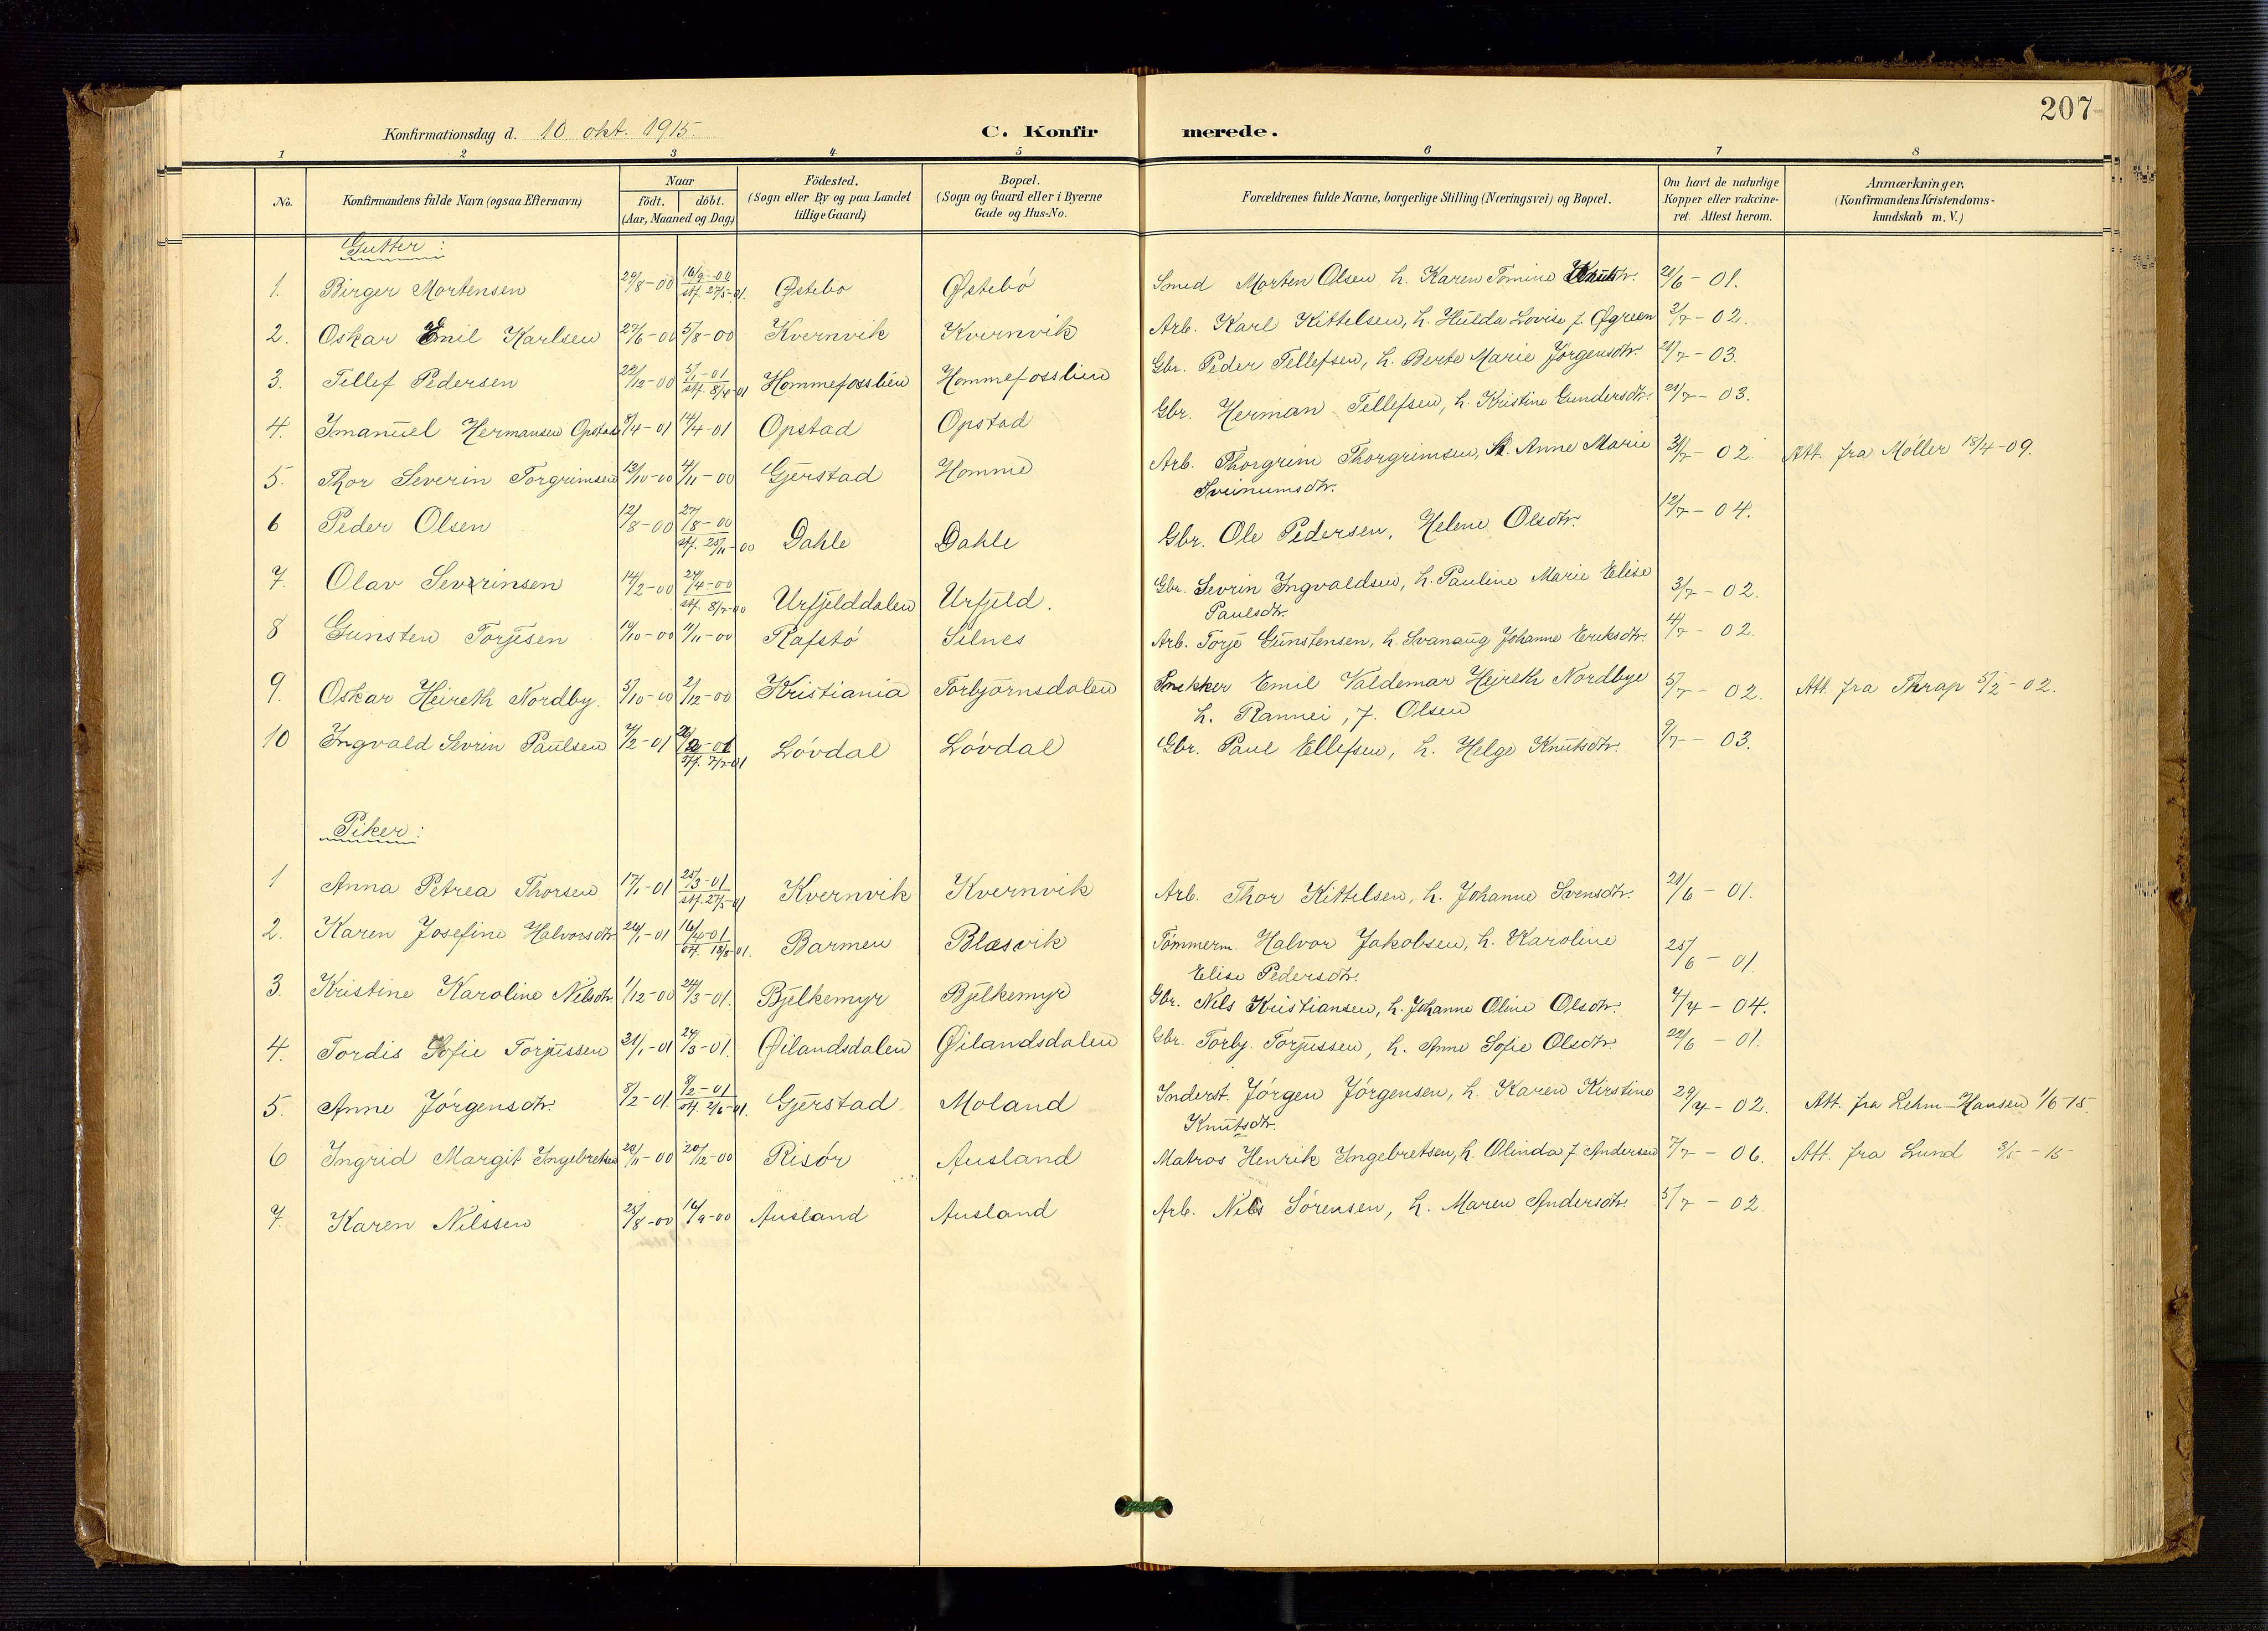 207
Konfirmationsdag d. 10 okt. 1915.
C. Konfirmerede.
1 2 3 4 5 6 7 8
No. | Konfirmandens fulde Navn (ogsaa Efternavn) | Naar födt. döbt. (Aar, Maaned og Dag) | Födested. (Sogn eller By og paa Landet tillige Gaard) | Bopæl. (Sogn og Gaard eller i Byerne Gade og Hus-No. | Forældrenes fulde Navne, borgerlige Stilling (Næringsvei) og Bopæl. | Om havt de naturlige Kopper eller vakcineret. Attest herom. | Anmærkninger, (Konfirmandens Kristendomskundskab m. V.)
Gutter:
1. Birger Mortensen 29/8-00 16/9-00 stf. 27/5-01. Østebö Østebö Smed Morten Olsen, h. Karen Tomine Knutsdtr. 21/6-01.
2. Oskar Emil Karlsen 27/6-00 5/8-00 Kvernvik Kvernvik Arb. Karl Kittelsen, h. Hulda Lovise f. Øgreen 3/7-02.
3. Tellef Pedersen 22/12-00 5/1-01 stf. 8/4-01 Hommefosslien Hommefosslien Gbr. Peder Tellefsen, h. Berte Marie Jørgensdtr. 21/7-03.
4. Imanuel Hermansen Opstad 8/4-01 14/4-01 Opstad Opstad Gbr. Herman Tellefsen, h. Kristine Gundersdtr. 21/7-03.
5. Thor Severin Torgrimsen 13/10-00 4/11-00 Gjerstad Homme Arb. Thorgrim Thorgrimsen, h. Anne Marie 3/7-02. Att. fra Möller 18/4-09.
Sveinumsdtr.
6 Peder Olsen 12/8-00 27/8-00 stf. 25/11-00 Dahle Dahle Gbr. Ole Pedersen, Helene Olsdtr. 12/7-04.
7. Olav Sevrinsen 14/2-00 24/4-00 stf. 8/7-00 Urfjelddalen Urfjeld. Gbr. Sevrin Ingvaldsen, h. Pauline Marie Elise 3/7-02.
Paulsdtr.
8 Gunsten Torjesen 19/10-00 11/11-00 Rafstö Silnes Arb. Torje Gunstensen, h. Svanaug Johanne Eriksdtr. 4/7-02.
9. Oskar Heireth Nordby. 5/10-00 2/12-00 Kristiania Torbjörnsdalen Snekker Emil Valdemar Hejreth Nordbye 5/7-02. Att. fra Thrap 5/2-02.
h. Rannei, f. Olsen
10 Ingvald Sevrin Paulsen 7/2-01 stf. 7/7-01 Lövdal Lövdal Gbr. Paul Ellefsen, h. Helge Knutsdtr. 9/7-03.
Piker:
1 Anna Petrea Thorsen 17/1-01 25/3-01 stf. 27/5-01 Kvernvik Kvernvik Arb. Thor Kittelsen, h. Johanne Svensdtr. 21/6-01.
2. Karen Josefine Halvorsdtr. 26/1-01 16/4-01 stf. 18/8-01. Barmen Blæsvik Tömmerm. Halvor Jakobsen, h. Karoline 25/6-01.
Elise Pedersdtr.
3. Kristine Karoline Nilsdtr. 1/12-00 24/3-01. Bjelkemyr Bjelkemyr Gbr. Nils Kristiansen, h. Johanne Oline Olsdtr. 7/4-04.
4. Tordis Sofie Torjussen 21/1-01 24/3-01. Øilandsdalen Øilandsdalen Gbr. Torbj. Torjussen, h. Anne Sofie Olsdtr. 22/6-01.
5. Anne Jörgensdtr. 8/2-01. 9/2-01 stf. 2/6-01. Gjerstad Moland Inderst. Jörgen Jörgensen, h. Karen Kirstine 29/4-02. Att. fra Lehm-Hansen 1/6-15.
Knutsdtr.
6 Ingrid Margit Ingebretsen 20/11-00 20/12-00 Risör Ausland Matros Henrik Ingebretsen, h. Olinda f. Andersen 7/7-06. Att. fra Lund 3/5-15
7. Karen Nilssen 25/8-00 16/9-00 Ausland Ausland Arb. Nils Sörensen, h. Maren Andersdtr. 5/7-02.